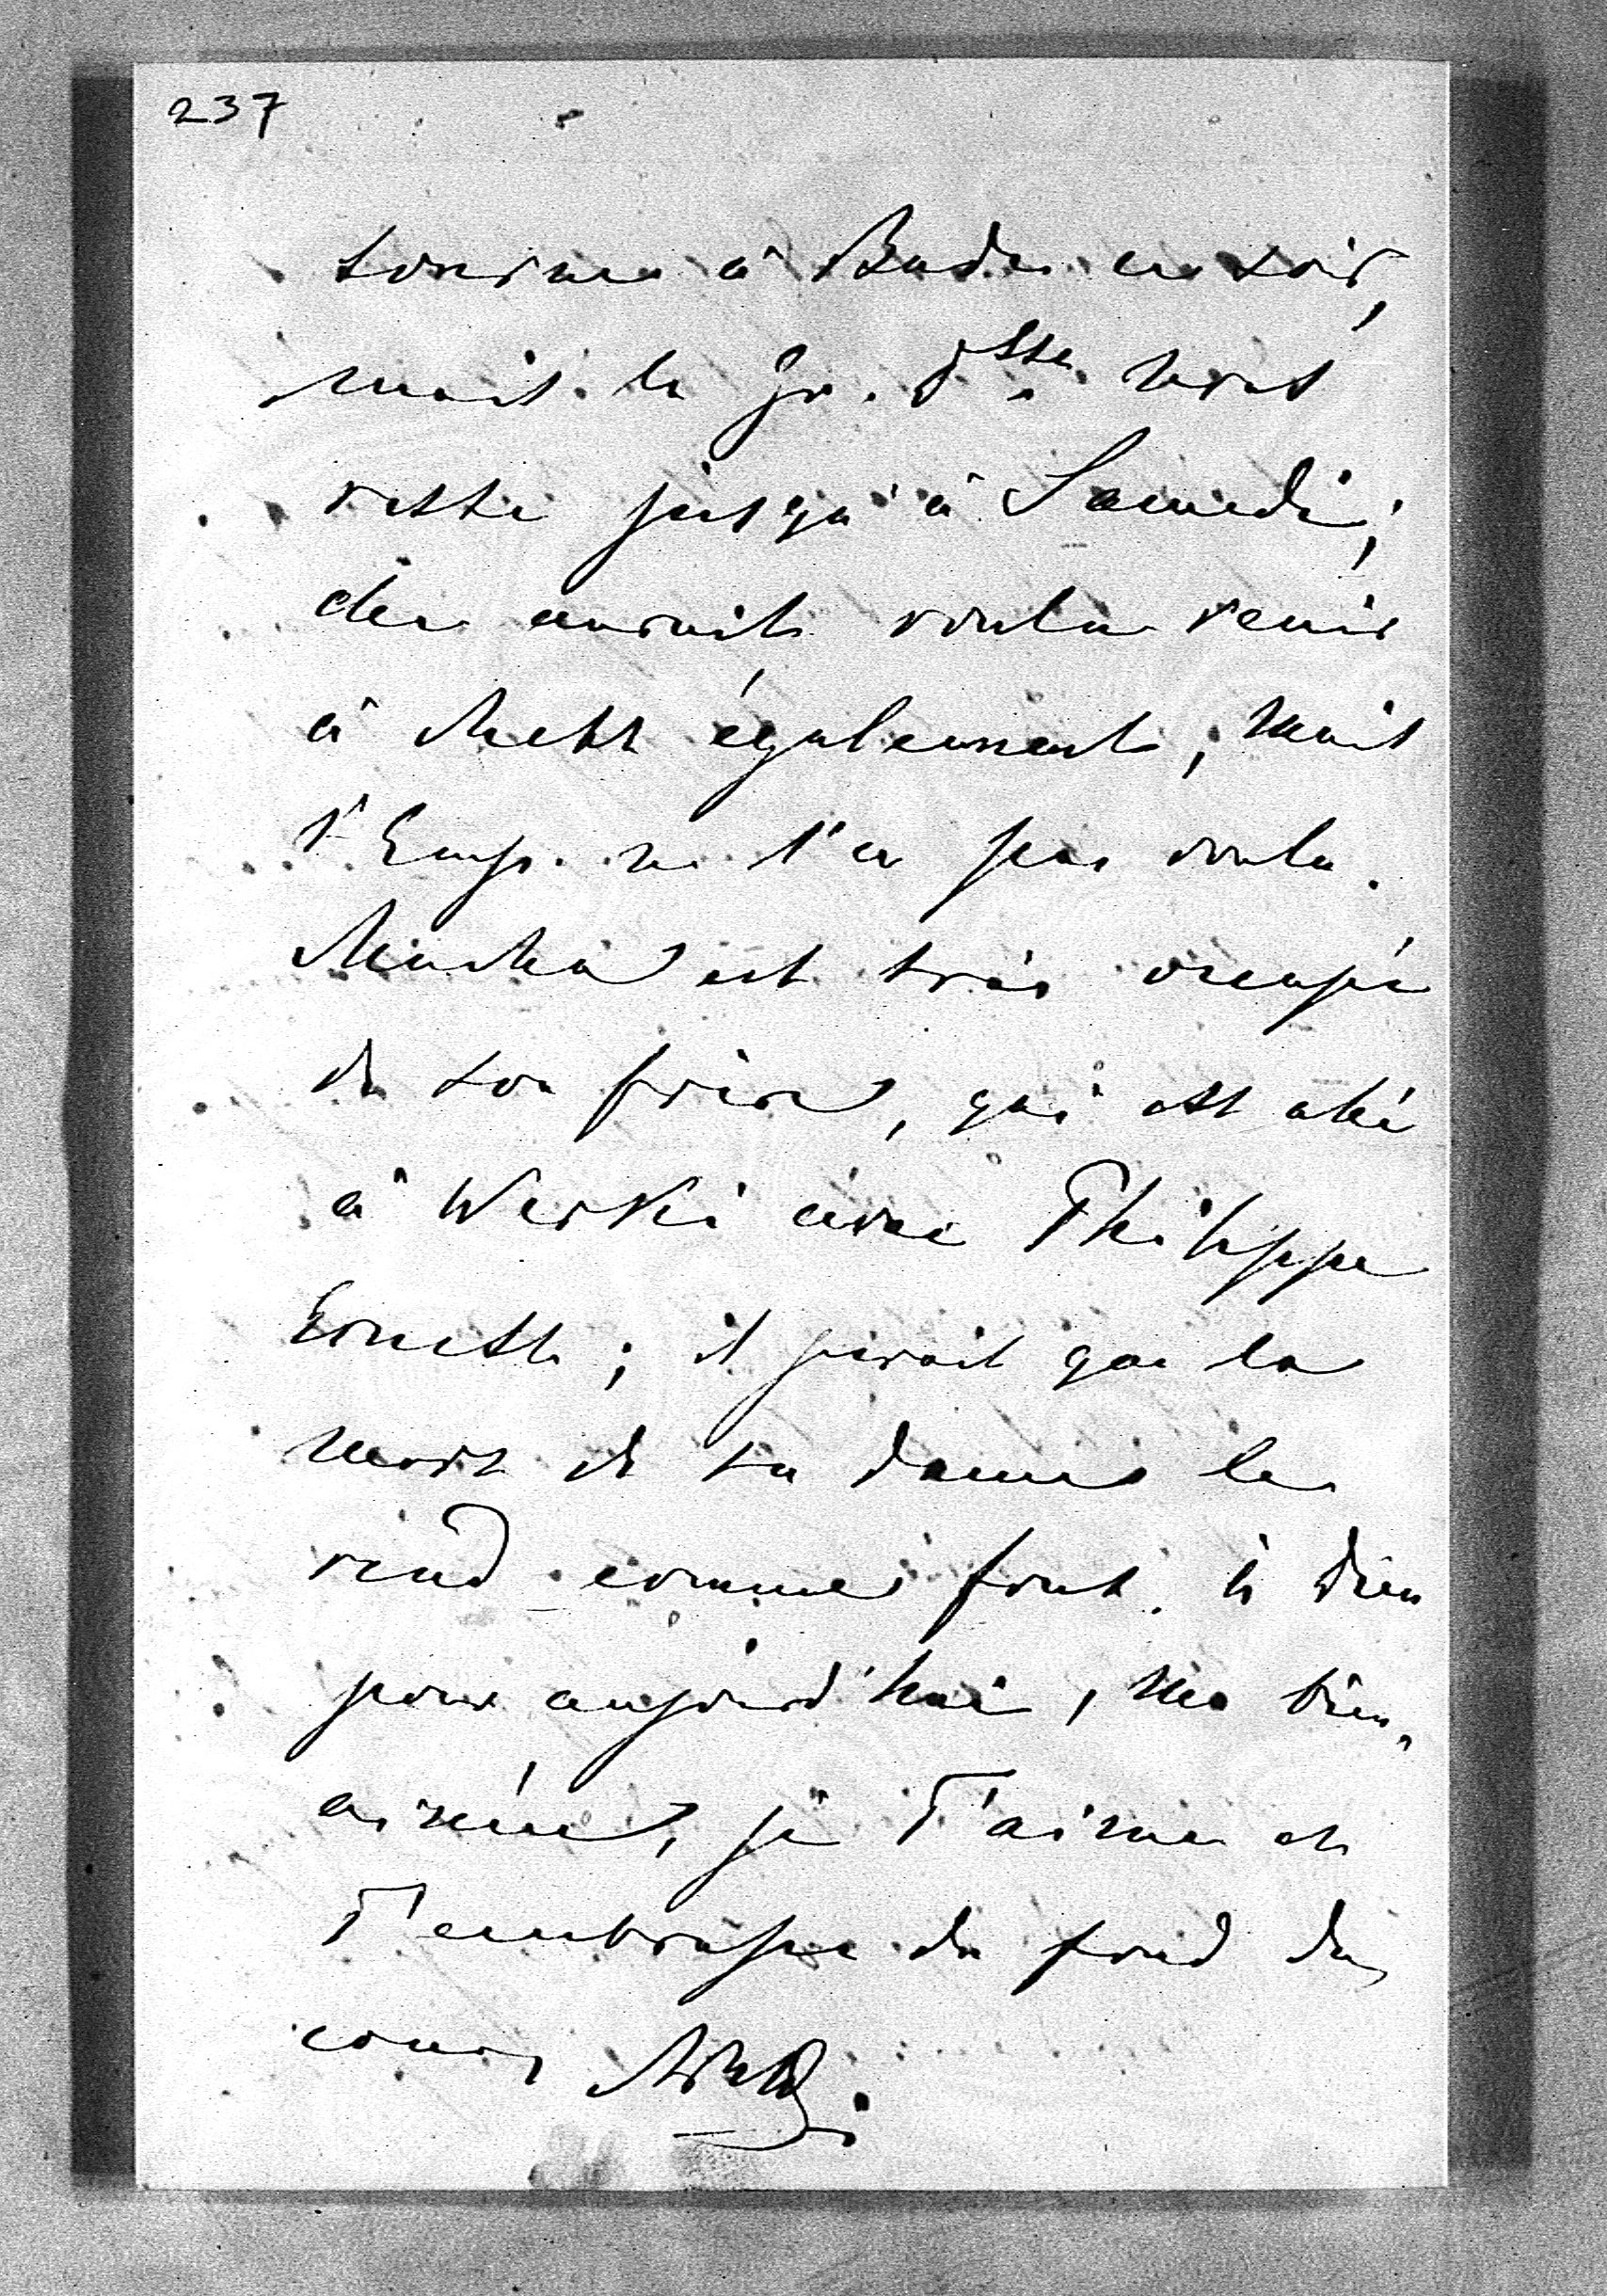 237
tourne à Bade ce soir,
mais la Gr. Dsse. nous
reste jusqu'à Samedi;
elle aurait voulu venir
à Metz également, mais
l'Emp. ne l'a pas voulu.
est très occupé
de son frère, qui est allé
à Werki avec Philippe
Erneste; il parait que la
mort de sa dame le
rend comme fout. à Dieu
pour aujourd'hui, ma bien-
aimée, je T'aime et
T'embrasse du fond du
coeur